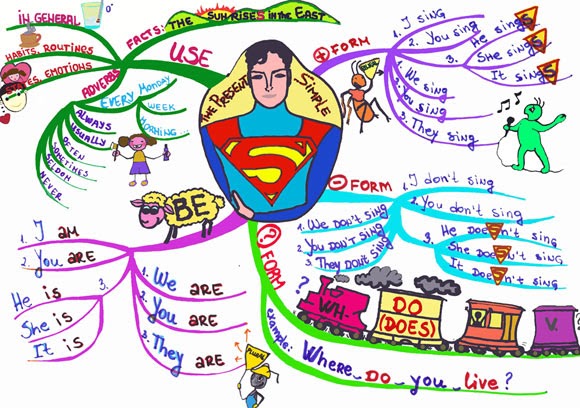 THE PRESENT SIMPLE
S
USE
IN GENERAL
FACTS: THE SUN RISES IN THE EAST
0°
HABITS, ROUTINGS
STATES, EMOTIONS
ADVERBS
EVERY MONDAY
WEEK
MORNING...
ALWAYS
USUALLY
OFTEN
SOMETIMES
SELDOM
NEVER
+ FORM
1. I sing
2. You sing
3. He singS
She singS
It singS
1. We sing
2. You sing
3. They sing
- FORM
1. I don't sing
2. You don't sing
3. He DoeSn't sing
She DoeSn't sing
It DoeSn't sing
1. We Don't sing
2. You Don't sing
3. They Don't sing
? FORM
?
WH-
DO
(DOES)
V.
example: Where DO you live?
BE
1. I AM
2. You ARE
3. He is
She is
It is
1. We ARE
2. You ARE
3. They ARE
PLURAL